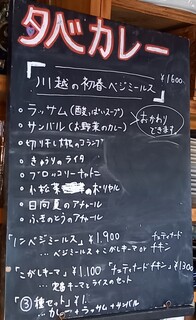 夕べカレー
「川越の初春ベジミールス」
¥1600
○ ラッサム(酸っぱいスープ)
○ サンバル(お野菜のカレー)
おかわりできます
○ 切り干し大根のコランブ
○ きゅうりのライタ
○ ブロッコリーチャトニ
○ 小松菜のポリヤル
○ 日向夏のアチャール
○ ふきのとうのアチャール
「ノンベジミールス」 ¥1,900
… ベジミールス + こがしキーマ or チェティナードチキン
「こがしキーマ」 ¥1.100 「チェティナードチキン」 ¥1300
… 定番キーマとライスのセット
「③種セット」 ¥1.
… カレー + ラッサム + サンバル